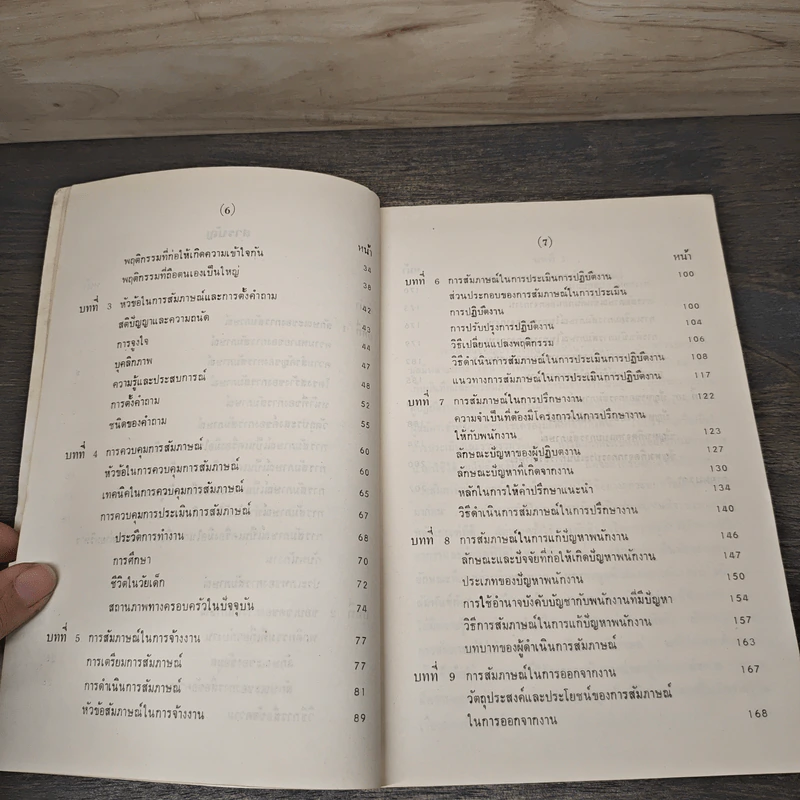 (6)
หน้า
พฤติกรรมที่ก่อให้เกิดความเข้าใจกัน 34
พฤติกรรมที่ถือตนเองเป็นใหญ่ 38
บทที่ 3 หัวข้อในการสัมภาษณ์และการตั้งคำถาม 42
สติปัญญาและความถนัด 43
การจูงใจ 44
บุคลิกภาพ 47
ความรู้และประสบการณ์ 48
การตั้งคำถาม 52
ชนิดของคำถาม 55
บทที่ 4 การควบคุมการสัมภาษณ์ 60
หัวข้อในการควบคุมการสัมภาษณ์ 60
เทคนิคในการควบคุมการสัมภาษณ์ 65
การควบคุมการประเมินการสัมภาษณ์ 67
ประวัติการทำงาน 68
การศึกษา 70
ชีวิตในวัยเด็ก 72
สถานภาพทางครอบครัวในปัจจุบัน 74
บทที่ 5 การสัมภาษณ์ในการจ้างงาน 77
การเตรียมการสัมภาษณ์ 77
การดำเนินการสัมภาษณ์ 81
หัวข้อสัมภาษณ์ในการจ้างงาน 89
(7)
หน้า
บทที่ 6 การสัมภาษณ์ในการประเมินการปฏิบัติงาน 100
ส่วนประกอบของการสัมภาษณ์ในการประเมิน
การปฏิบัติงาน 100
การปรับปรุงการปฏิบัติงาน 104
วิธีเปลี่ยนแปลงพฤติกรรม 106
วิธีดำเนินการสัมภาษณ์ในการประเมินการปฏิบัติงาน 108
แนวทางการสัมภาษณ์ในการประเมินการปฏิบัติงาน 117
บทที่ 7 การสัมภาษณ์ในการปรึกษางาน 122
ความจำเป็นที่ต้องมีโครงการในการปรึกษางาน
ให้กับพนักงาน 123
ลักษณะปัญหาของผู้ปฏิบัติงาน 127
ลักษณะปัญหาที่เกิดจากงาน 130
หลักในการให้คำปรึกษาแนะนำ 134
วิธีดำเนินการสัมภาษณ์ในการปรึกษางาน 140
บทที่ 8 การสัมภาษณ์ในการแก้ปัญหาพนักงาน 146
ลักษณะและปัจจัยที่ก่อให้เกิดปัญหาพนักงาน 147
ประเภทของปัญหาพนักงาน 150
การใช้อำนาจบังคับบัญชากับพนักงานที่มีปัญหา 154
วิธีการสัมภาษณ์ในการแก้ปัญหาพนักงาน 157
บทบาทของผู้ดำเนินการสัมภาษณ์ 163
บทที่ 9 การสัมภาษณ์ในการออกจากงาน 167
วัตถุประสงค์และประโยชน์ของการสัมภาษณ์
ในการออกจากงาน 168